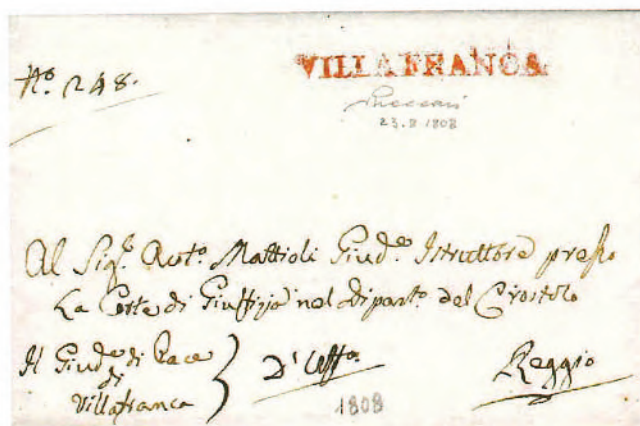 N.º 248.
VILLAFRANCA
23.8.1808
Al Sig.r Avv.to Mattioli Giud.e Istruttore presso
La Corte di Giustizia nel Dipart.o del Crostolo
Il Giud.e di Pace
di
Villafranca
D'Uff.o
Reggio
1808